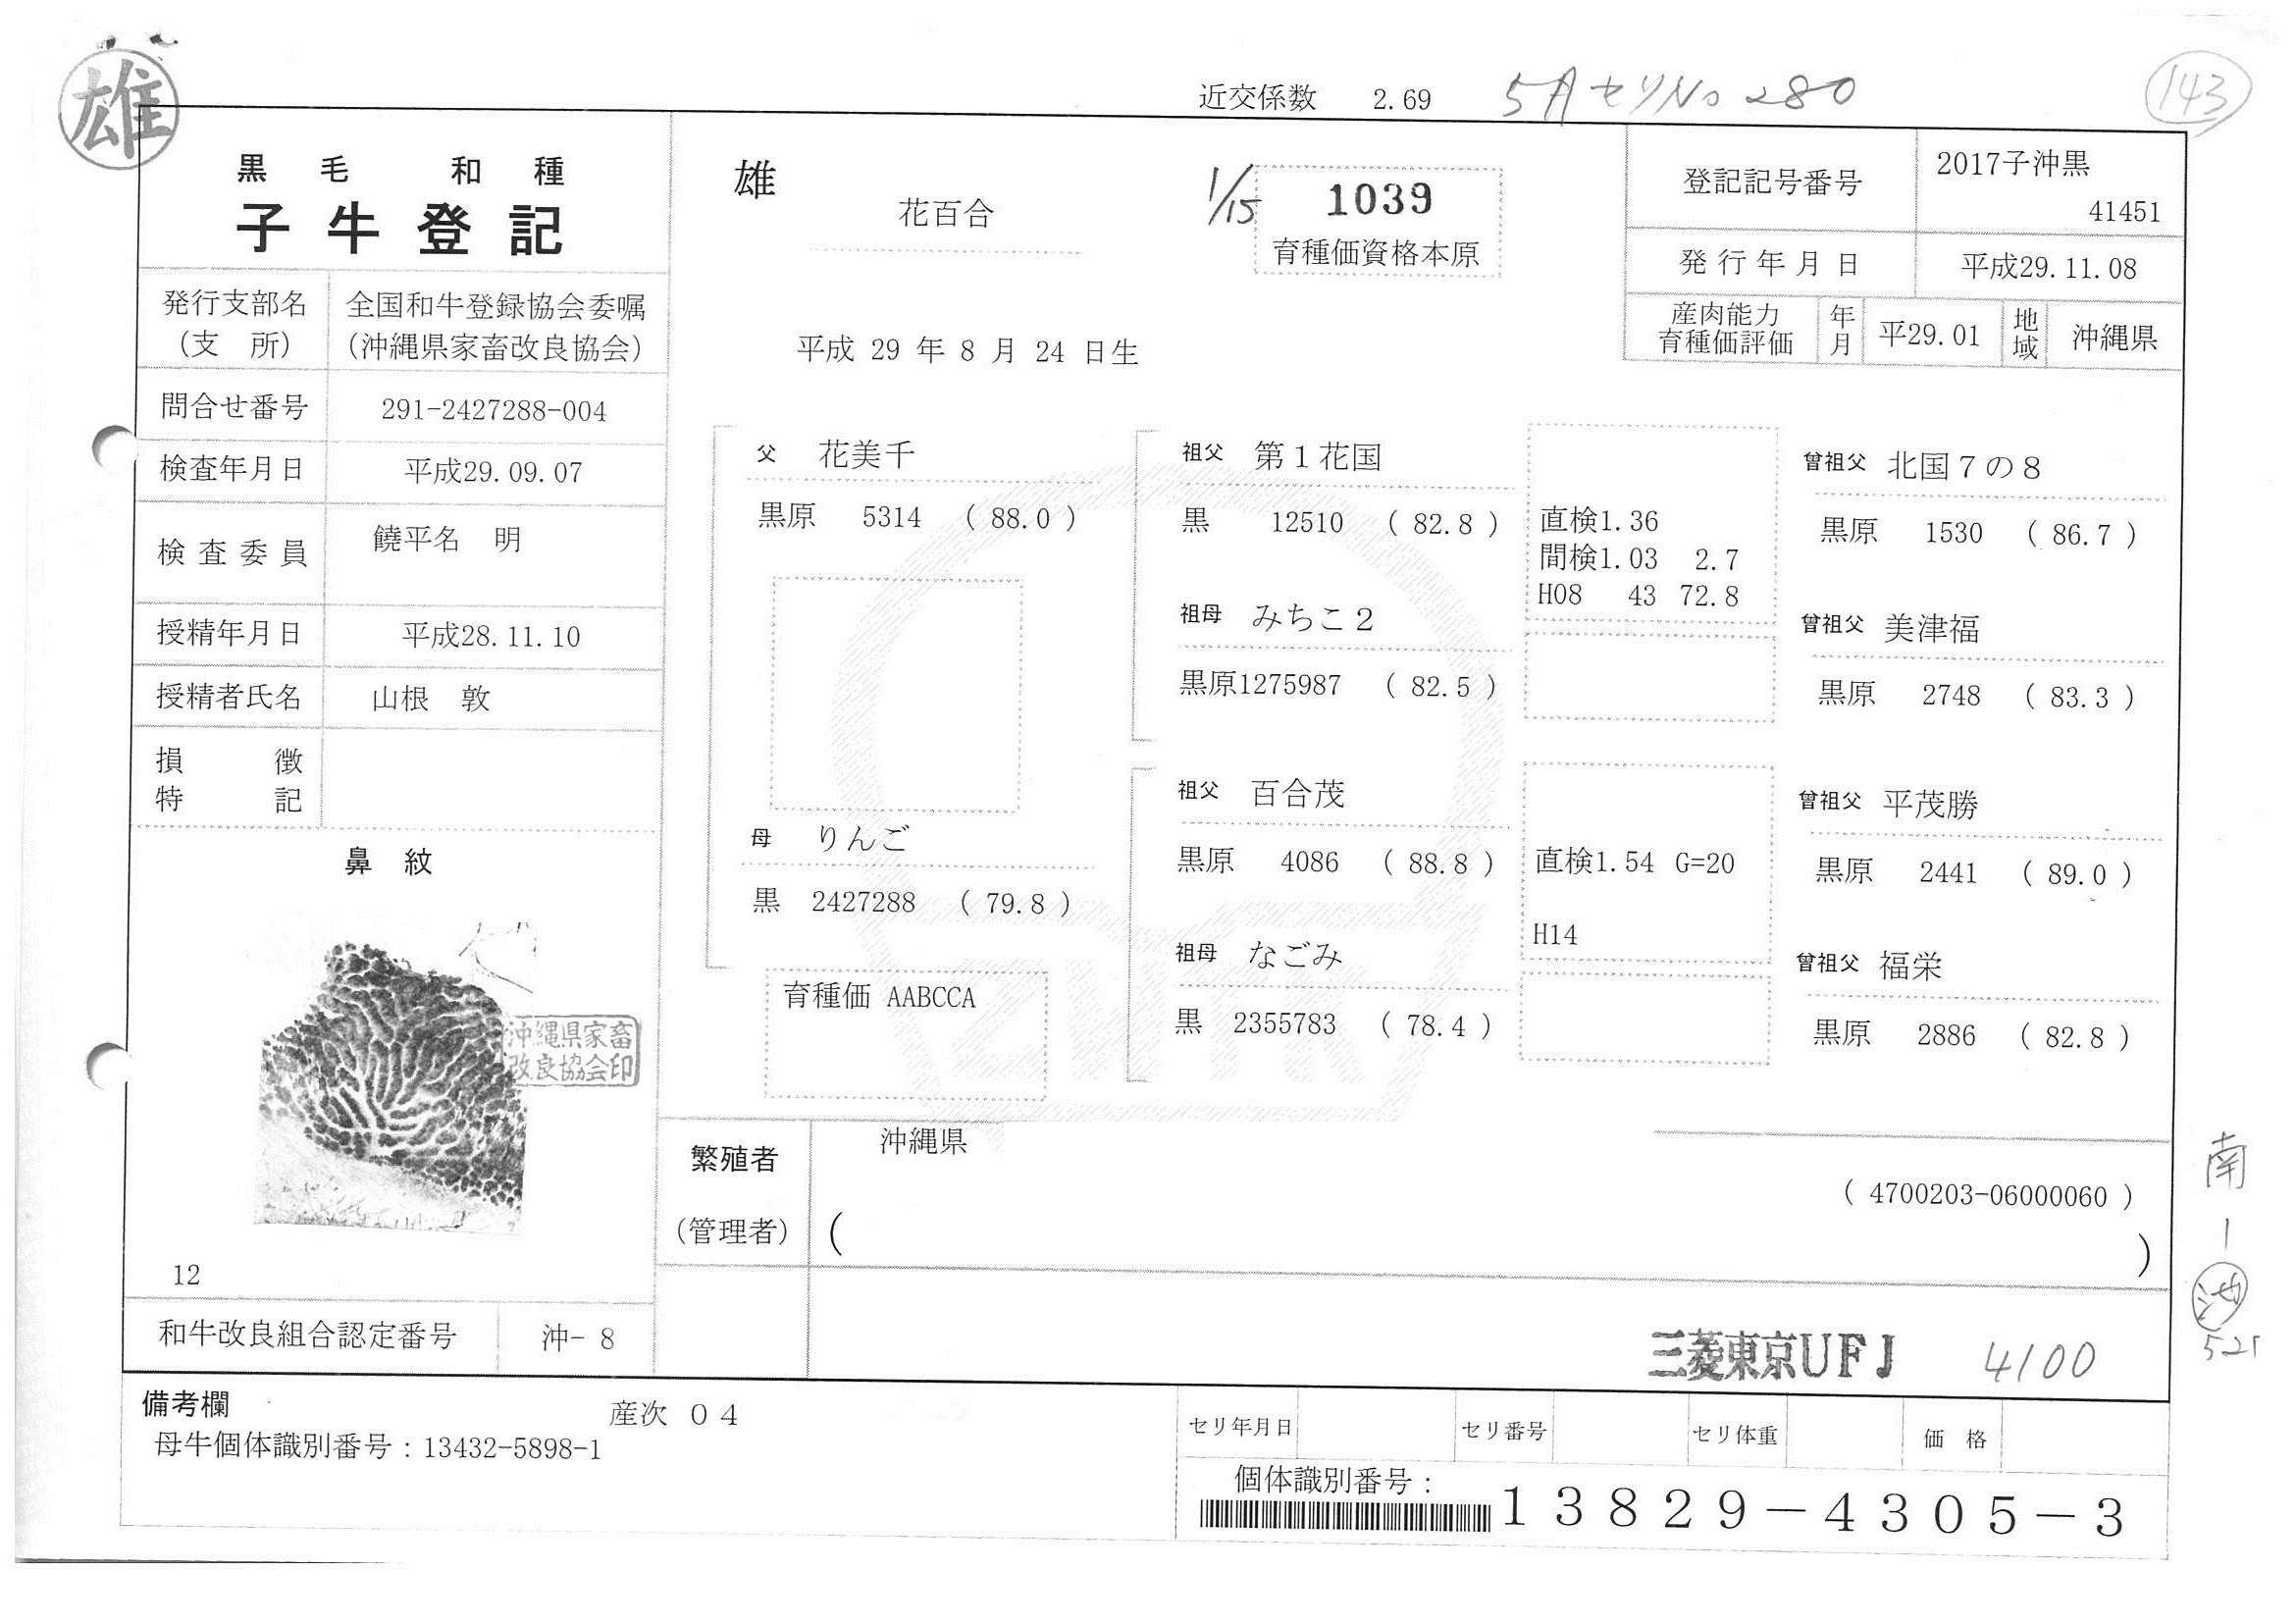 雄
近交係数 2.69 5月セリNo 280
143
黒毛 和種
子牛登記
発行支部名（支 所） 全国和牛登録協会委嘱（沖縄県家畜改良協会）
問合せ番号 291-2427288-004
検査年月日 平成29.09.07
検査委員 饒平名 明
授精年月日 平成28.11.10
授精者氏名 山根 敦
損徴
特記
鼻紋
沖縄県家畜
改良協会印
12
和牛改良組合認定番号 沖- 8
雄
花百合
1/15
1039
育種価資格本原
平成 29 年 8 月 24 日生
登記記号番号 2017子沖黒
41451
発行年月日 平成29.11.08
産肉能力
育種価評価 年月 平29.01 地域 沖縄県
父 花美千
黒原 5314 （ 88.0 ）
母 りんご
黒 2427288 （ 79.8 ）
育種価 AABCCA
祖父 第1花国
黒 12510 （ 82.8 ）
祖母 みちこ2
黒原1275987 （ 82.5 ）
祖父 百合茂
黒原 4086 （ 88.8 ）
祖母 なごみ
黒 2355783 （ 78.4 ）
直検1.36
間検1.03 2.7
H08 43 72.8
直検1.54 G=20
H14
曾祖父 北国7の8
黒原 1530 （ 86.7 ）
曾祖父 美津福
黒原 2748 （ 83.3 ）
曾祖父 平茂勝
黒原 2441 （ 89.0 ）
曾祖父 福栄
黒原 2886 （ 82.8 ）
繁殖者 沖縄県
（ 4700203-06000060 ）
（管理者） （ ）
南
1
521
三菱東京UFJ 4100
備考欄 産次 04
母牛個体識別番号：13432-5898-1
セリ年月日 セリ番号 セリ体重 価格
個体識別番号：
13829-4305-3